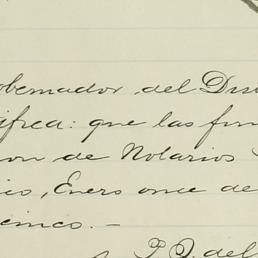 obernador del Dis
ifica: que las fir
on de Notarios
ico, Enero once de
cinco. —
P. O. del